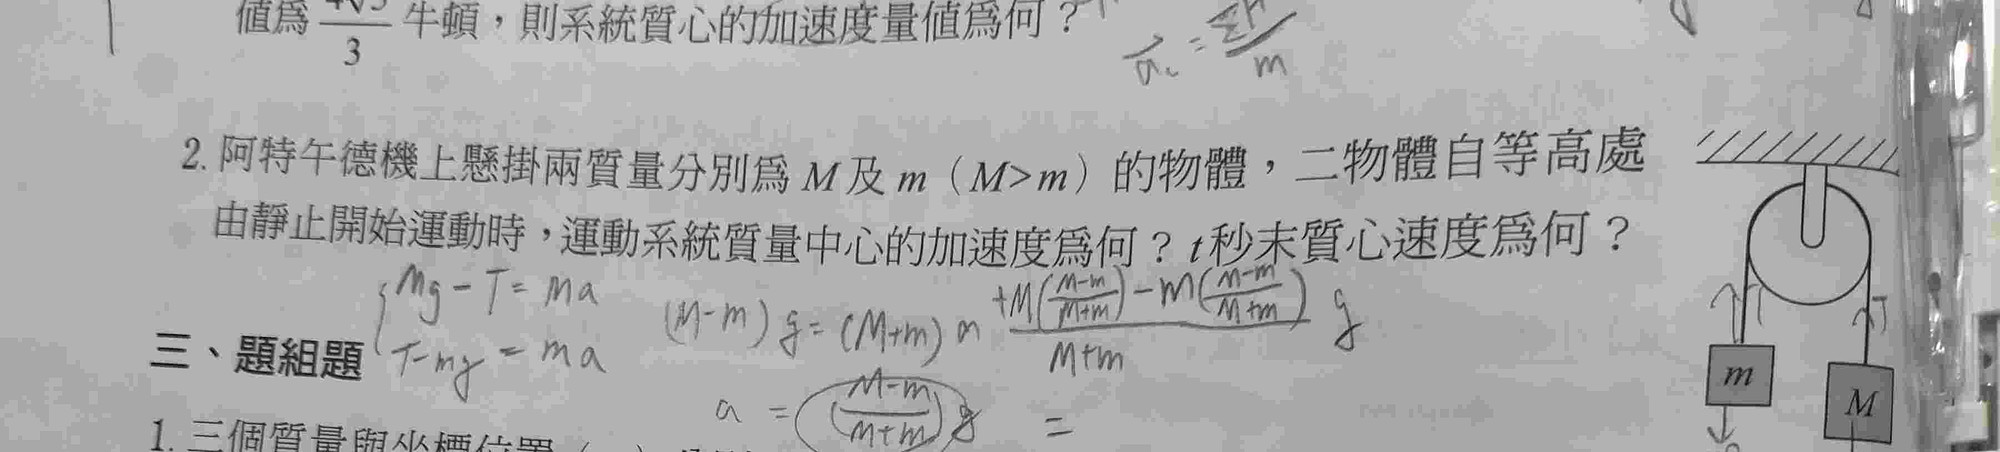 值為 4√3/3 牛頓，則系統質心的加速度量值為何？
a⃗c = ΣF/m
2. 阿特午德機上懸掛兩質量分別為 M 及 m（M>m）的物體，二物體自等高處
由靜止開始運動時，運動系統質量中心的加速度為何？t 秒末質心速度為何？
Mg-T=Ma
T-mg=ma
(M-m)g=(M+m)a
(+M((M-m)/(M+m))-m((M-m)/(M+m)))/(M+m) g
a=((M-m)/(M+m))g
=
T
m
M
三、題組題
1. 三個質量與坐標位置（